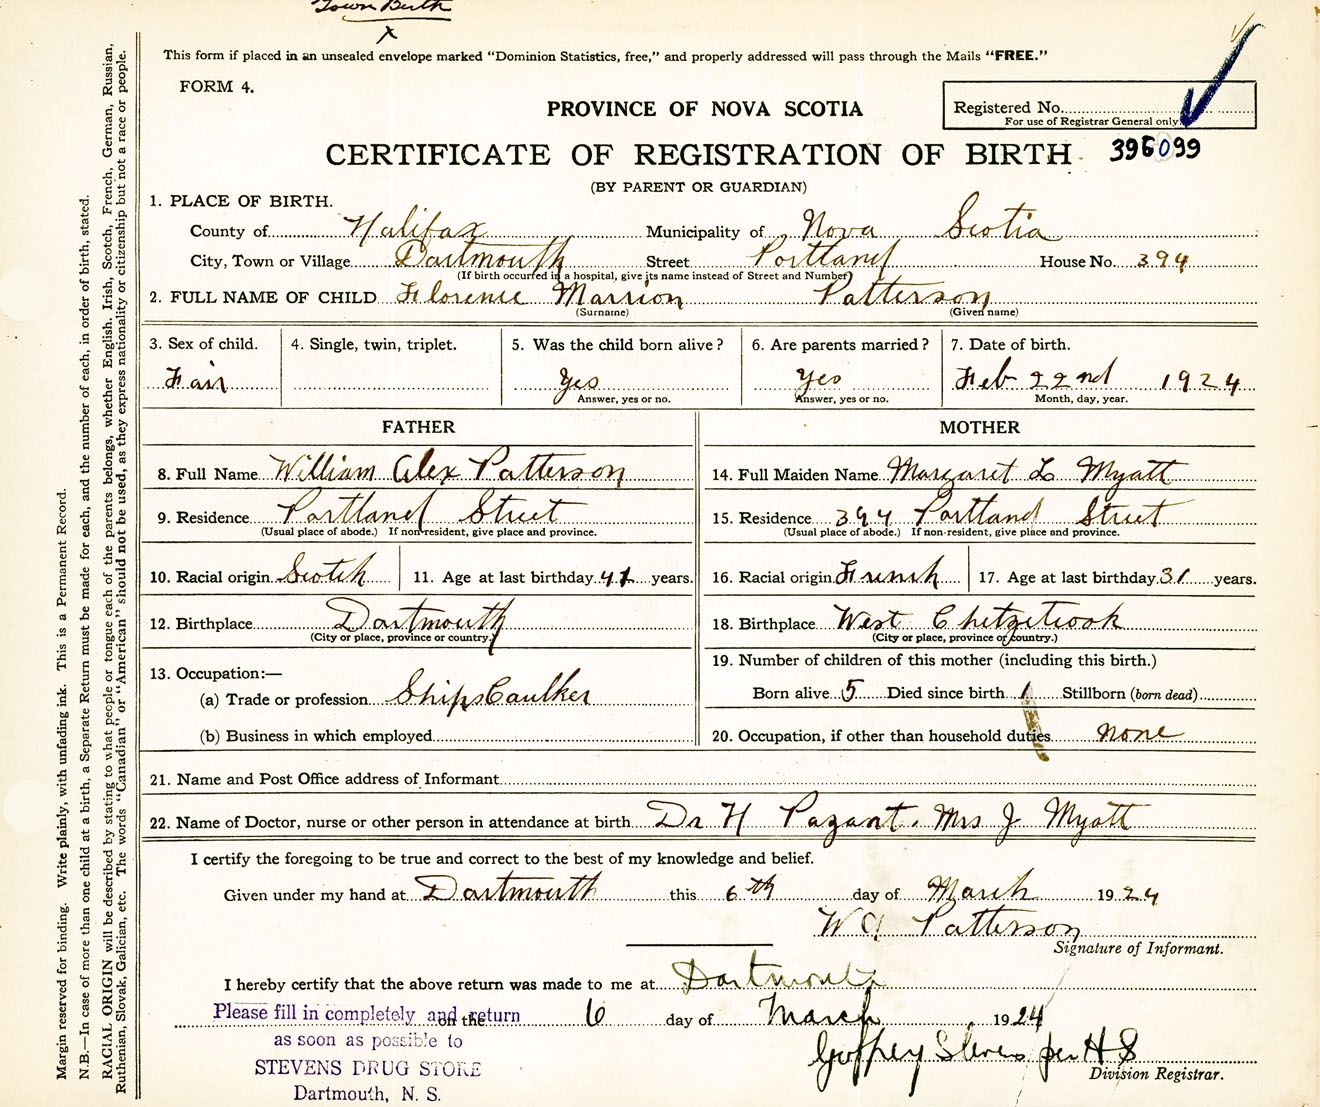 Town Birth
x
This form if placed in an unsealed envelope marked "Dominion Statistics, free," and properly addressed will pass through the Mails "FREE."
FORM 4.
PROVINCE OF NOVA SCOTIA
Registered No.
For use of Registrar General only.
CERTIFICATE OF REGISTRATION OF BIRTH 396099
(BY PARENT OR GUARDIAN)
1. PLACE OF BIRTH.
County of Halifax Municipality of Nova Scotia
City, Town or Village Dartmouth Street Portland House No. 394
(If birth occurred in a hospital, give its name instead of Street and Number)
2. FULL NAME OF CHILD Florence Marrion Patterson
(Surname) (Given name)
3. Sex of child. 4. Single, twin, triplet. 5. Was the child born alive? 6. Are parents married? 7. Date of birth.
Fair Yes Yes Feb 22nd 1924
Answer, yes or no. Answer, yes or no. Month, day, year.
FATHER MOTHER
8. Full Name William Alex Patterson 14. Full Maiden Name Margaret L Myatt
9. Residence Portland Street 15. Residence 394 Portland Street
(Usual place of abode.) If non-resident, give place and province. (Usual place of abode.) If non-resident, give place and province.
10. Racial origin Scotch 11. Age at last birthday 41 years. 16. Racial origin French 17. Age at last birthday 31 years.
12. Birthplace Dartmouth 18. Birthplace West Chetzetcook
(City or place, province or country.) (City or place, province or country.)
13. Occupation:— 19. Number of children of this mother (including this birth.)
(a) Trade or profession Ships Caulker Born alive 5 Died since birth 1 Stillborn (born dead)
(b) Business in which employed 20. Occupation, if other than household duties none
21. Name and Post Office address of Informant
22. Name of Doctor, nurse or other person in attendance at birth Dr H Pazant. Mrs J Myatt
I certify the foregoing to be true and correct to the best of my knowledge and belief.
Given under my hand at Dartmouth this 6th day of March 1924
W A Patterson
Signature of Informant.
I hereby certify that the above return was made to me at Dartmouth
on the 6 day of March 1924
Please fill in completely and return
as soon as possible to
STEVENS DRUG STORE
Dartmouth, N. S.
Goffrey Stevens per H S
Division Registrar.
Margin reserved for binding. Write plainly, with unfading ink. This is a Permanent Record.
N.B.—In case of more than one child at a birth, a Separate Return must be made for each, and the number of each, in order of birth, stated.
RACIAL ORIGIN will be described by stating to what people or tongue each of the parents belongs, whether English, Irish, Scotch, French, German, Russian,
Ruthenian, Slovak, Galician, etc. The words "Canadian" or "American" should not be used, as they express nationality or citizenship but not a race or people.